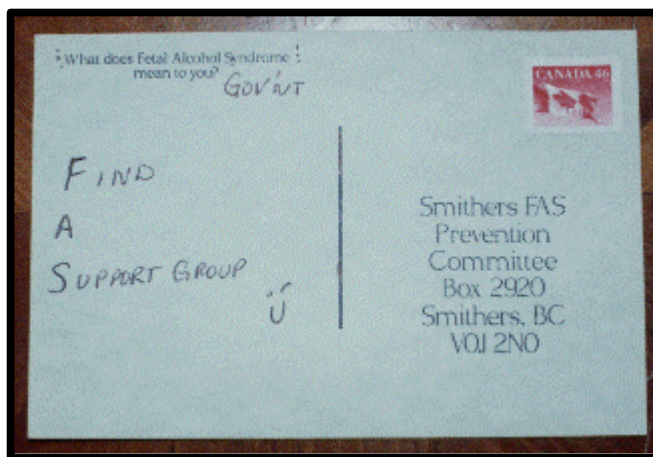 What does Fetal Alcohol Syndrome
mean to you?
GOV'NT
FIND
A
SUPPORT GROUP
CANADA 46
Smithers FAS
Prevention
Committee
Box 2920
Smithers, BC
V0J 2N0